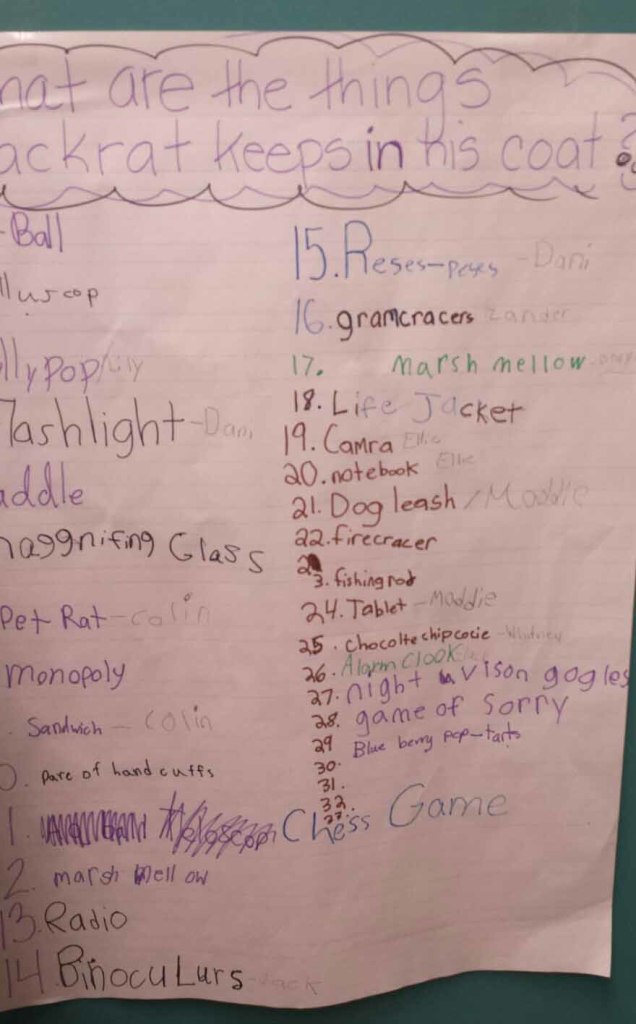 hat are the things
ackrat keeps in his coat?
-Ball
lluscop
llypop/Lily
lashlight-Dani
addle
naggnifing Glass
Pet Rat-colin
monopoly
Sandwich - Colin
0. pare of hand cuffs
1. Chess Game
2. marsh mellow
13. Radio
14. BinocuLurs-Jack
15. Reses-peses -Dani
16. gramcracers Zander
17. marsh mellow
18. Life Jacket
19. Camra Ellie
20. notebook Ellie
21. Dog leash / Maddie
22. firecracer
23. fishing rod
24. Tablet - Maddie
25. chocoltechipcocie - Whitney
26. Alarm Clook
27. night vison gogles
28. game of Sorry
29 Blue berry pop-tarts
30.
31.
32.
33.